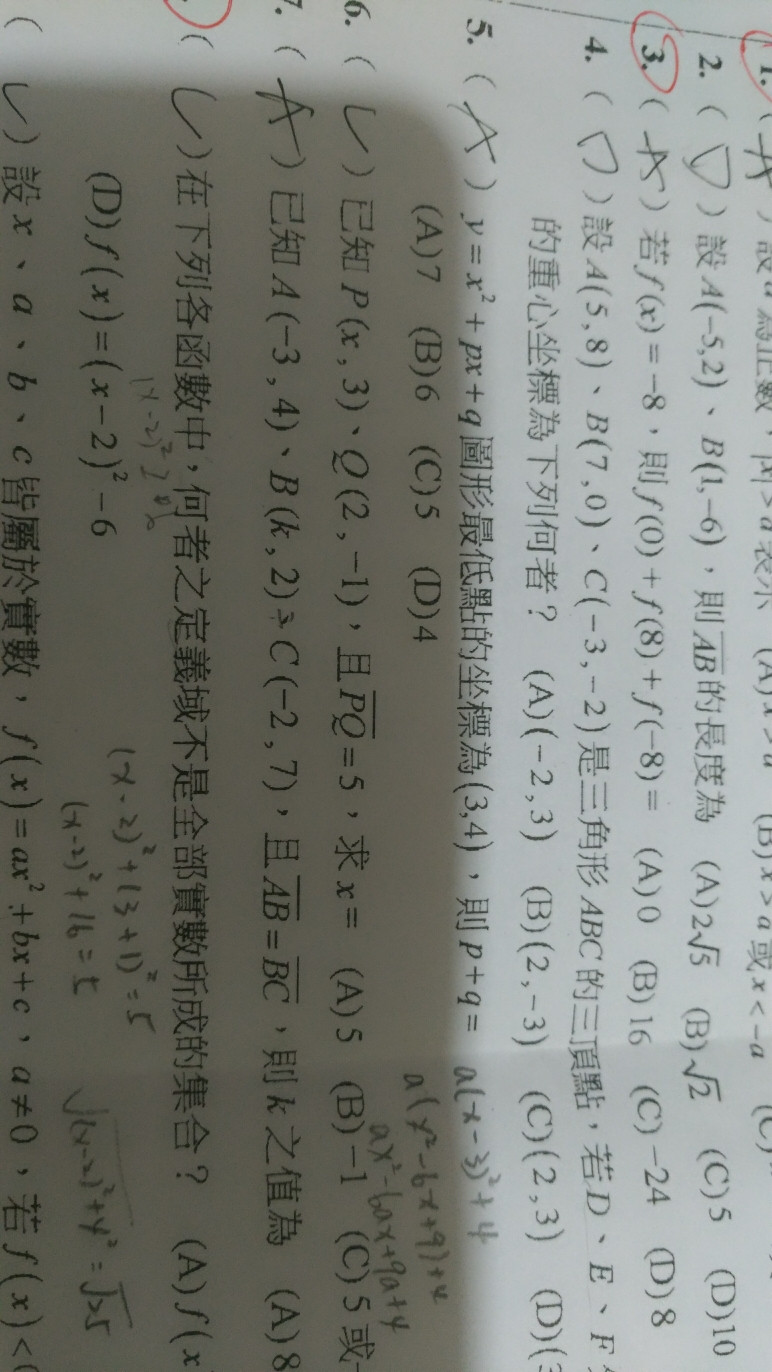 1. (A) 設a為正數，|x|>a表示 (A)x>a (B)x>a或x<-a (C)
2. (D) 設A(-5,2)、B(1,-6)，則AB的長度為 (A)2√5 (B)√2 (C)5 (D)10
3. (A) 若f(x)=-8，則f(0)+f(8)+f(-8)= (A)0 (B)16 (C)-24 (D)8
4. (D) 設A(5,8)、B(7,0)、C(-3,-2)是三角形ABC的三頂點，若D、E、F
的重心坐標為下列何者？ (A)(-2,3) (B)(2,-3) (C)(2,3) (D)(3
5. (A) y=x²+px+q圖形最低點的坐標為(3,4)，則p+q= a(x-3)²+4
(A)7 (B)6 (C)5 (D)4
a(x²-6x+9)+4
ax²-6ax+9a+4
6. (C) 已知P(x,3)、Q(2,-1)，且PQ=5，求x= (A)5 (B)-1 (C)5或-
7. (A) 已知A(-3,4)、B(k,2)、C(-2,7)，且AB=BC，則k之值為 (A)8
(C) 在下列各函數中，何者之定義域不是全部實數所成的集合？ (A)f(x
(D)f(x)=(x-2)²-6
(x-2)²+(3+1)²=5
(x-2)²+16=5
√(x-2)²+4²=√25
(C) 設x、a、b、c皆屬於實數，f(x)=ax²+bx+c，a≠0，若f(x)<0